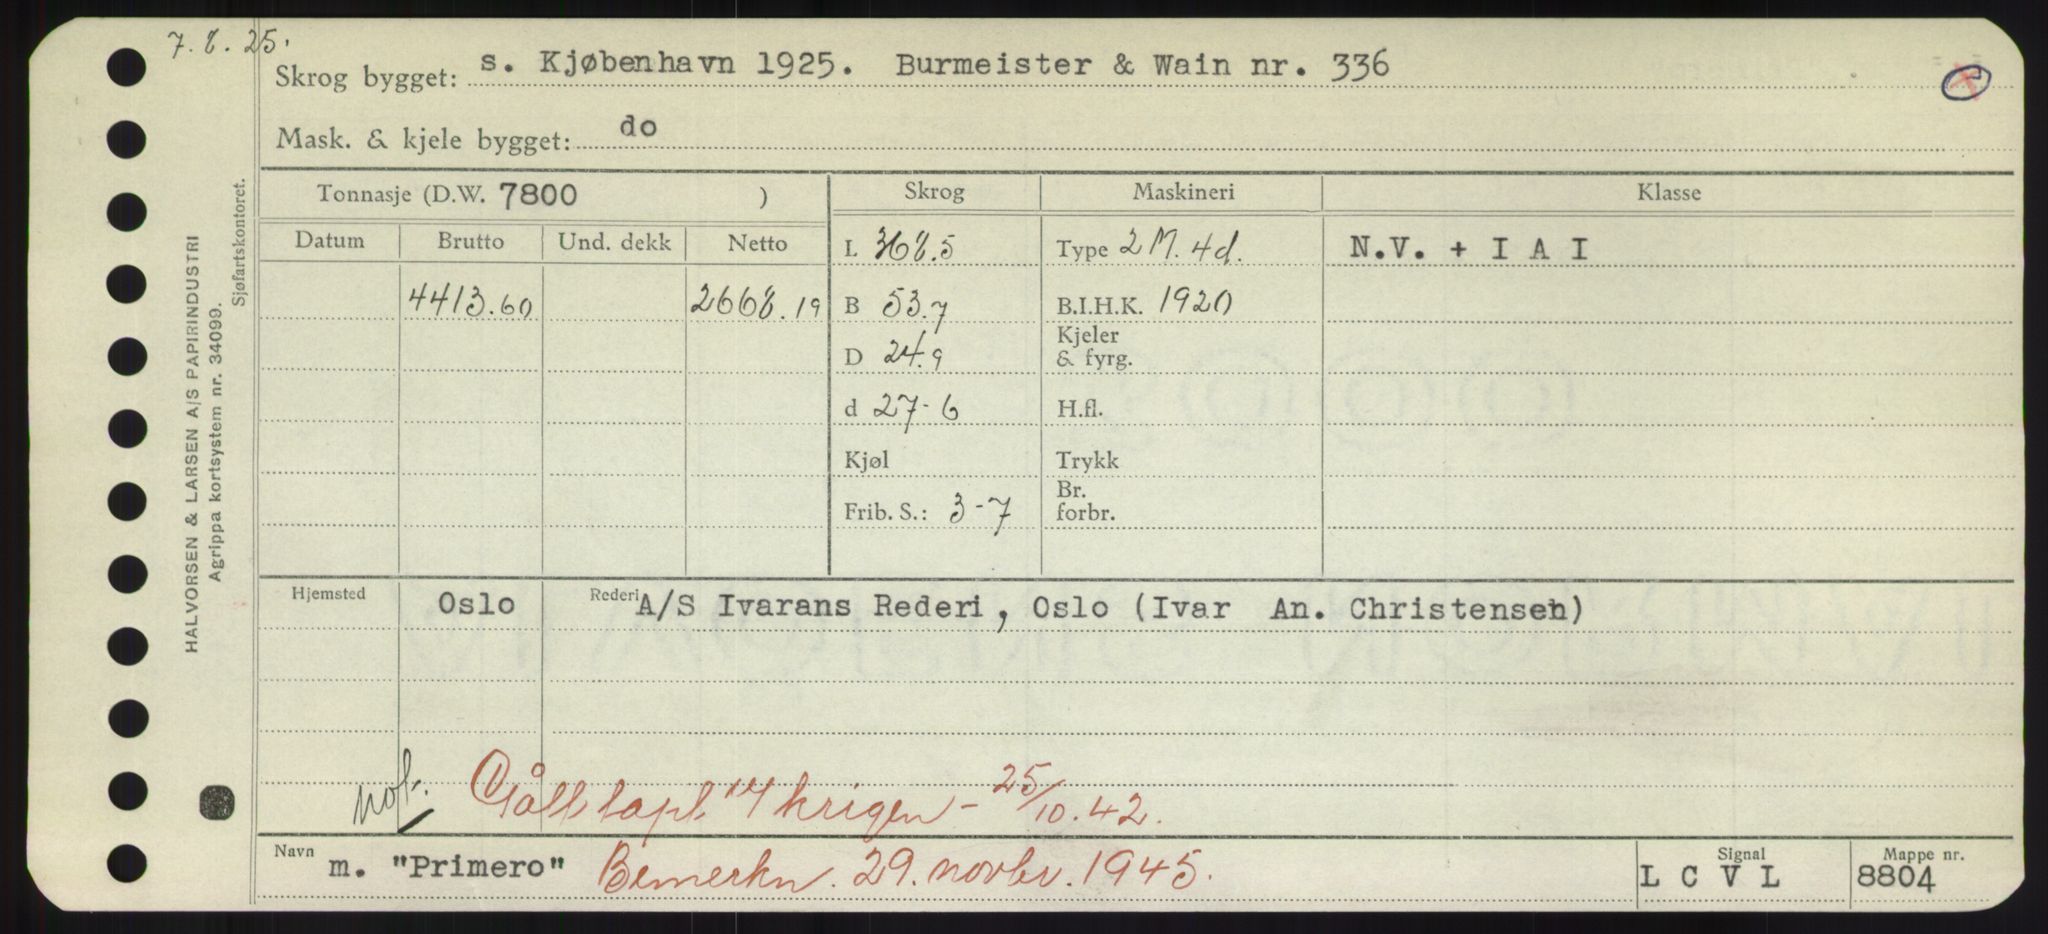 7.8.25.
Skrog bygget: s. Kjøbenhavn 1925. Burmeister & Wain nr. 336
Mask. & kjele bygget: do
Tonnasje (D.W. 7800 ) Skrog Maskineri Klasse
Datum Brutto Und. dekk Netto
L 368.5 Type 2 M. 4d. N.V. + I A I
4413.60 2668.19 B 53.7 B.I.H.K. 1920
D 24.9 Kjeler & fyrg.
d 27-6 H.fl.
Kjøl Trykk
Frib. S.: 3-7 Br. forbr.
Hjemsted Oslo Rederi A/S Ivarans Rederi, Oslo (Ivar An. Christensen)
not. Gått tapt i krigen - 25/10.42.
Navn m. "Primero" Bemerkn. 29. novbr. 1945. Signal L C V L Mappe nr. 8804
HALVORSEN & LARSEN A/S PAPIRINDUSTRI
Agrippa kortsystem nr. 34099.
Sjøfartskontoret.